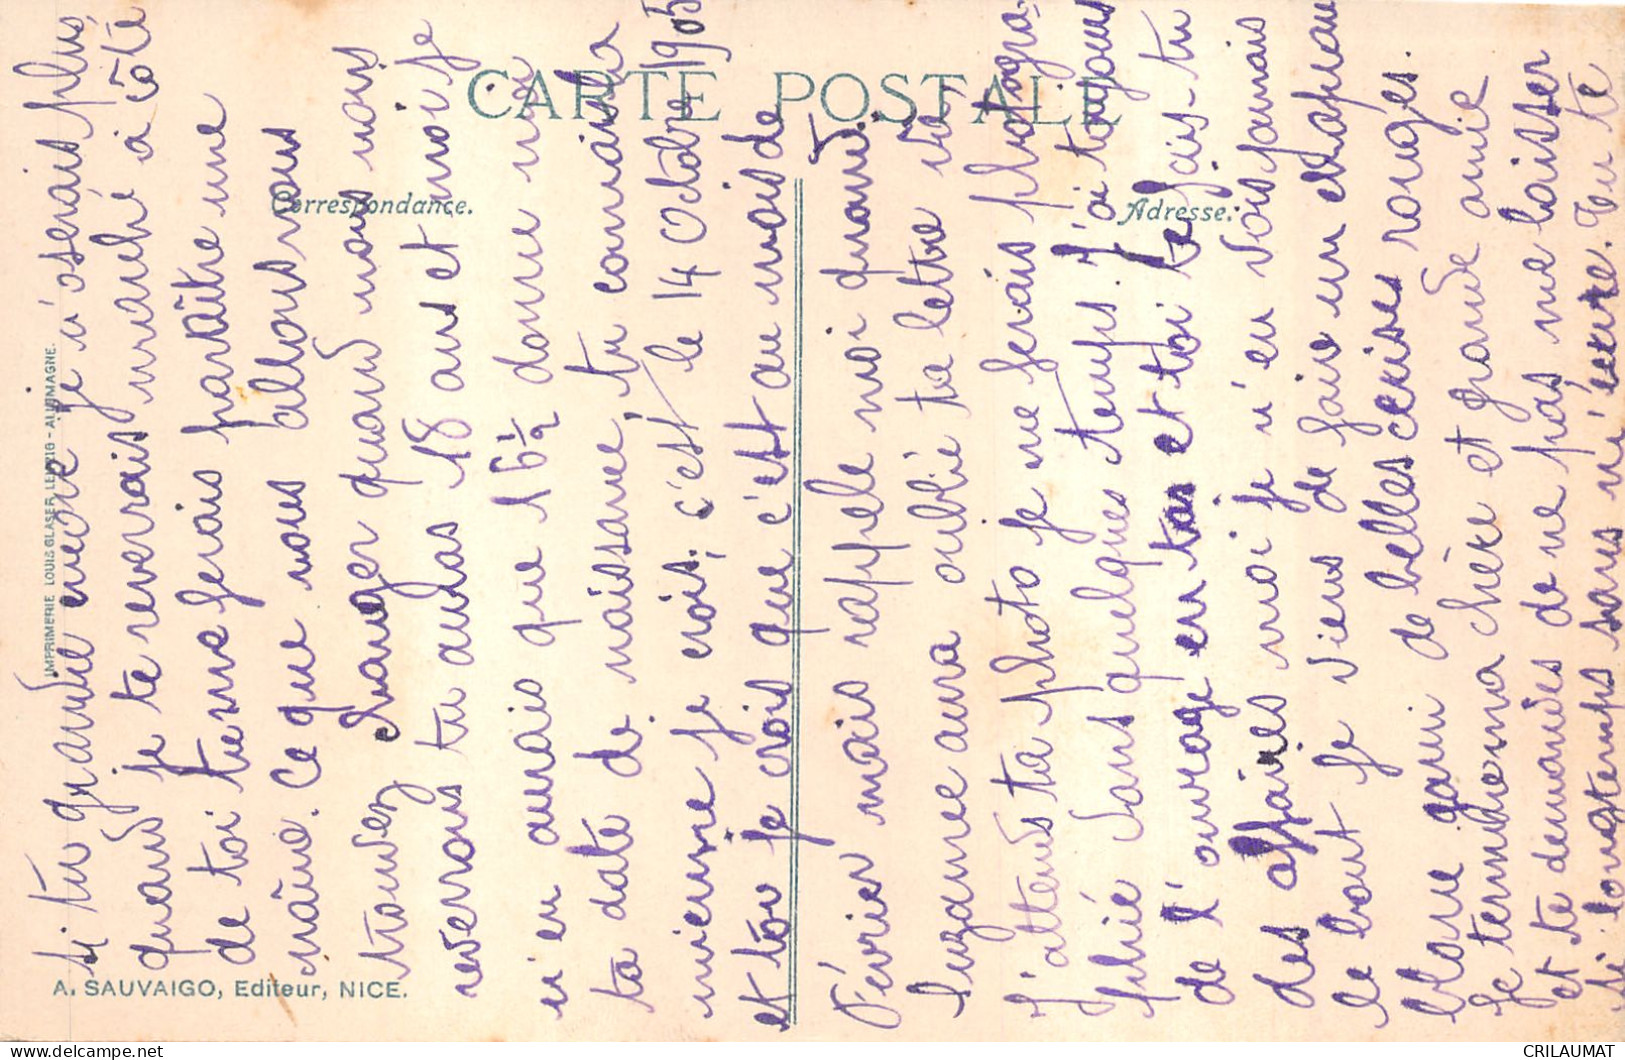 CARTE POSTALE
Correspondance.
Adresse.
IMPRIMERIE LOUIS GLASER LEIPZIG - ALLEMAGNE.
A. SAUVAIGO, Editeur, NICE.
si tu grandie encore je n'oserais plus,
quand je te reverrais marché à côté
de toi tu me ferais paraître une
naine. Ce que nous allons nous
changer quand nous nous
trouvez
reverrons tu auras 18 ans et moi je
n'en aurais que 16 ½ donne moi
ta date de naissance, tu connais la
mienne je crois, c'est le 14 Octobre 1905
et toi je crois que c'est au mois de
Février mais rappele moi quand.
Suzanne aura oublié ta lettre
J'attends ta photo je me ferais photogra-
phié dans quelques temps. J'ai toujours
de l'ouvrage en tas et toi tu fais-tu
des affaires moi je n'en vois jamais
le bout je viens de faire un chapeau
blanc garni de belles cerises rouges.
Je termine ma chère et grande amie
et te demandes de ne pas me laisser
si longtemps sans m'écrire. Tu te
CRILAUMAT